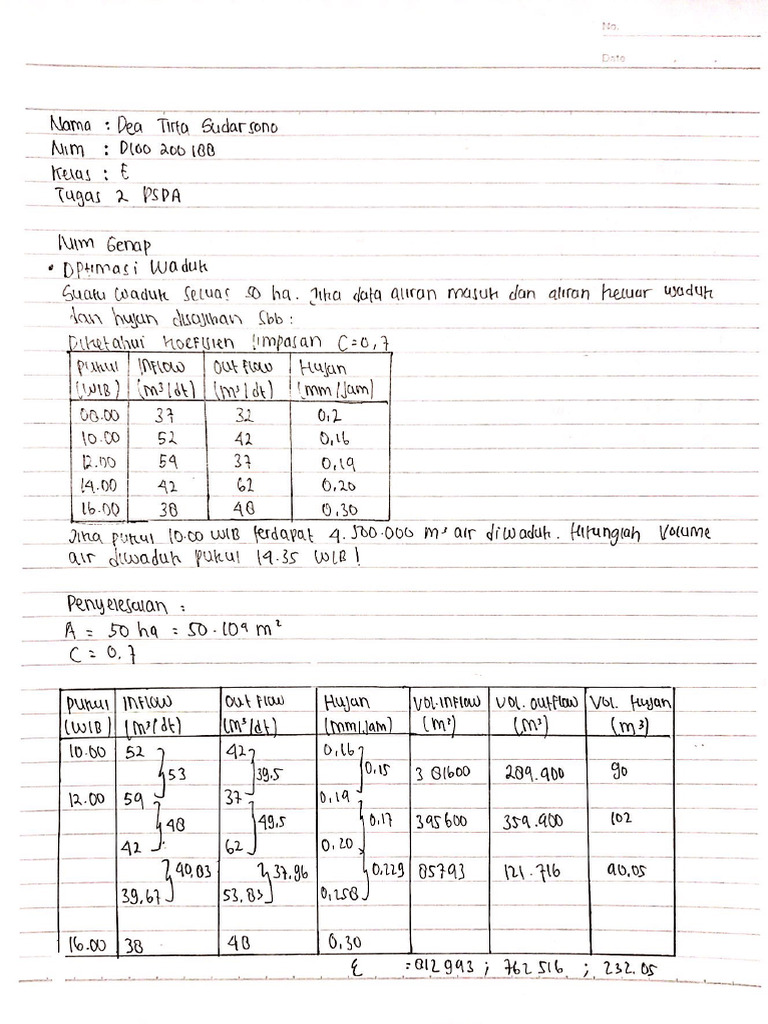 No.
Date
Nama : Dea Tirta Sudarsono
Nim : D100 200 188
Kelas : E
Tugas 2 PSDA
Nim Genap
• Optimasi Waduk
Suatu waduk seluas 50 ha. Jika data aliran masuk dan aliran keluar waduk
dan hujan disajikan sbb :
Diketahui koefisien limpasan C = 0,7
Pukul (WIB) Inflow (m³/dt) Out flow (m³/dt) Hujan (mm/jam)
08.00 37 32 0,2
10.00 52 42 0,16
12.00 54 37 0,19
14.00 42 62 0,20
16.00 38 48 0,30
Jika pukul 10.00 WIB terdapat 4.500.000 m³ air diwaduk. Hitunglah Volume
air diwaduk pukul 14.35 WIB !
Penyelesaian :
A = 50 ha = 50.10⁴ m²
C = 0.7
Pukul (WIB) Inflow (m³/dt) Out flow (m³/dt) Hujan (mm/jam) Vol.inflow (m³) Vol. outflow (m³) Vol. Hujan (m³)
10.00 52 42 0,16
53 39.5 0,15 381600 289.400 90
12.00 54 37 0,19
48 49,5 0,17 345600 354.400 102
42 62 0,20
40,83 37,96 0,229 85743 121.716 40,05
39,67 53,83 0,258
16.00 38 48 0,30
Σ = 812 943 ; 762 516 ; 232.05